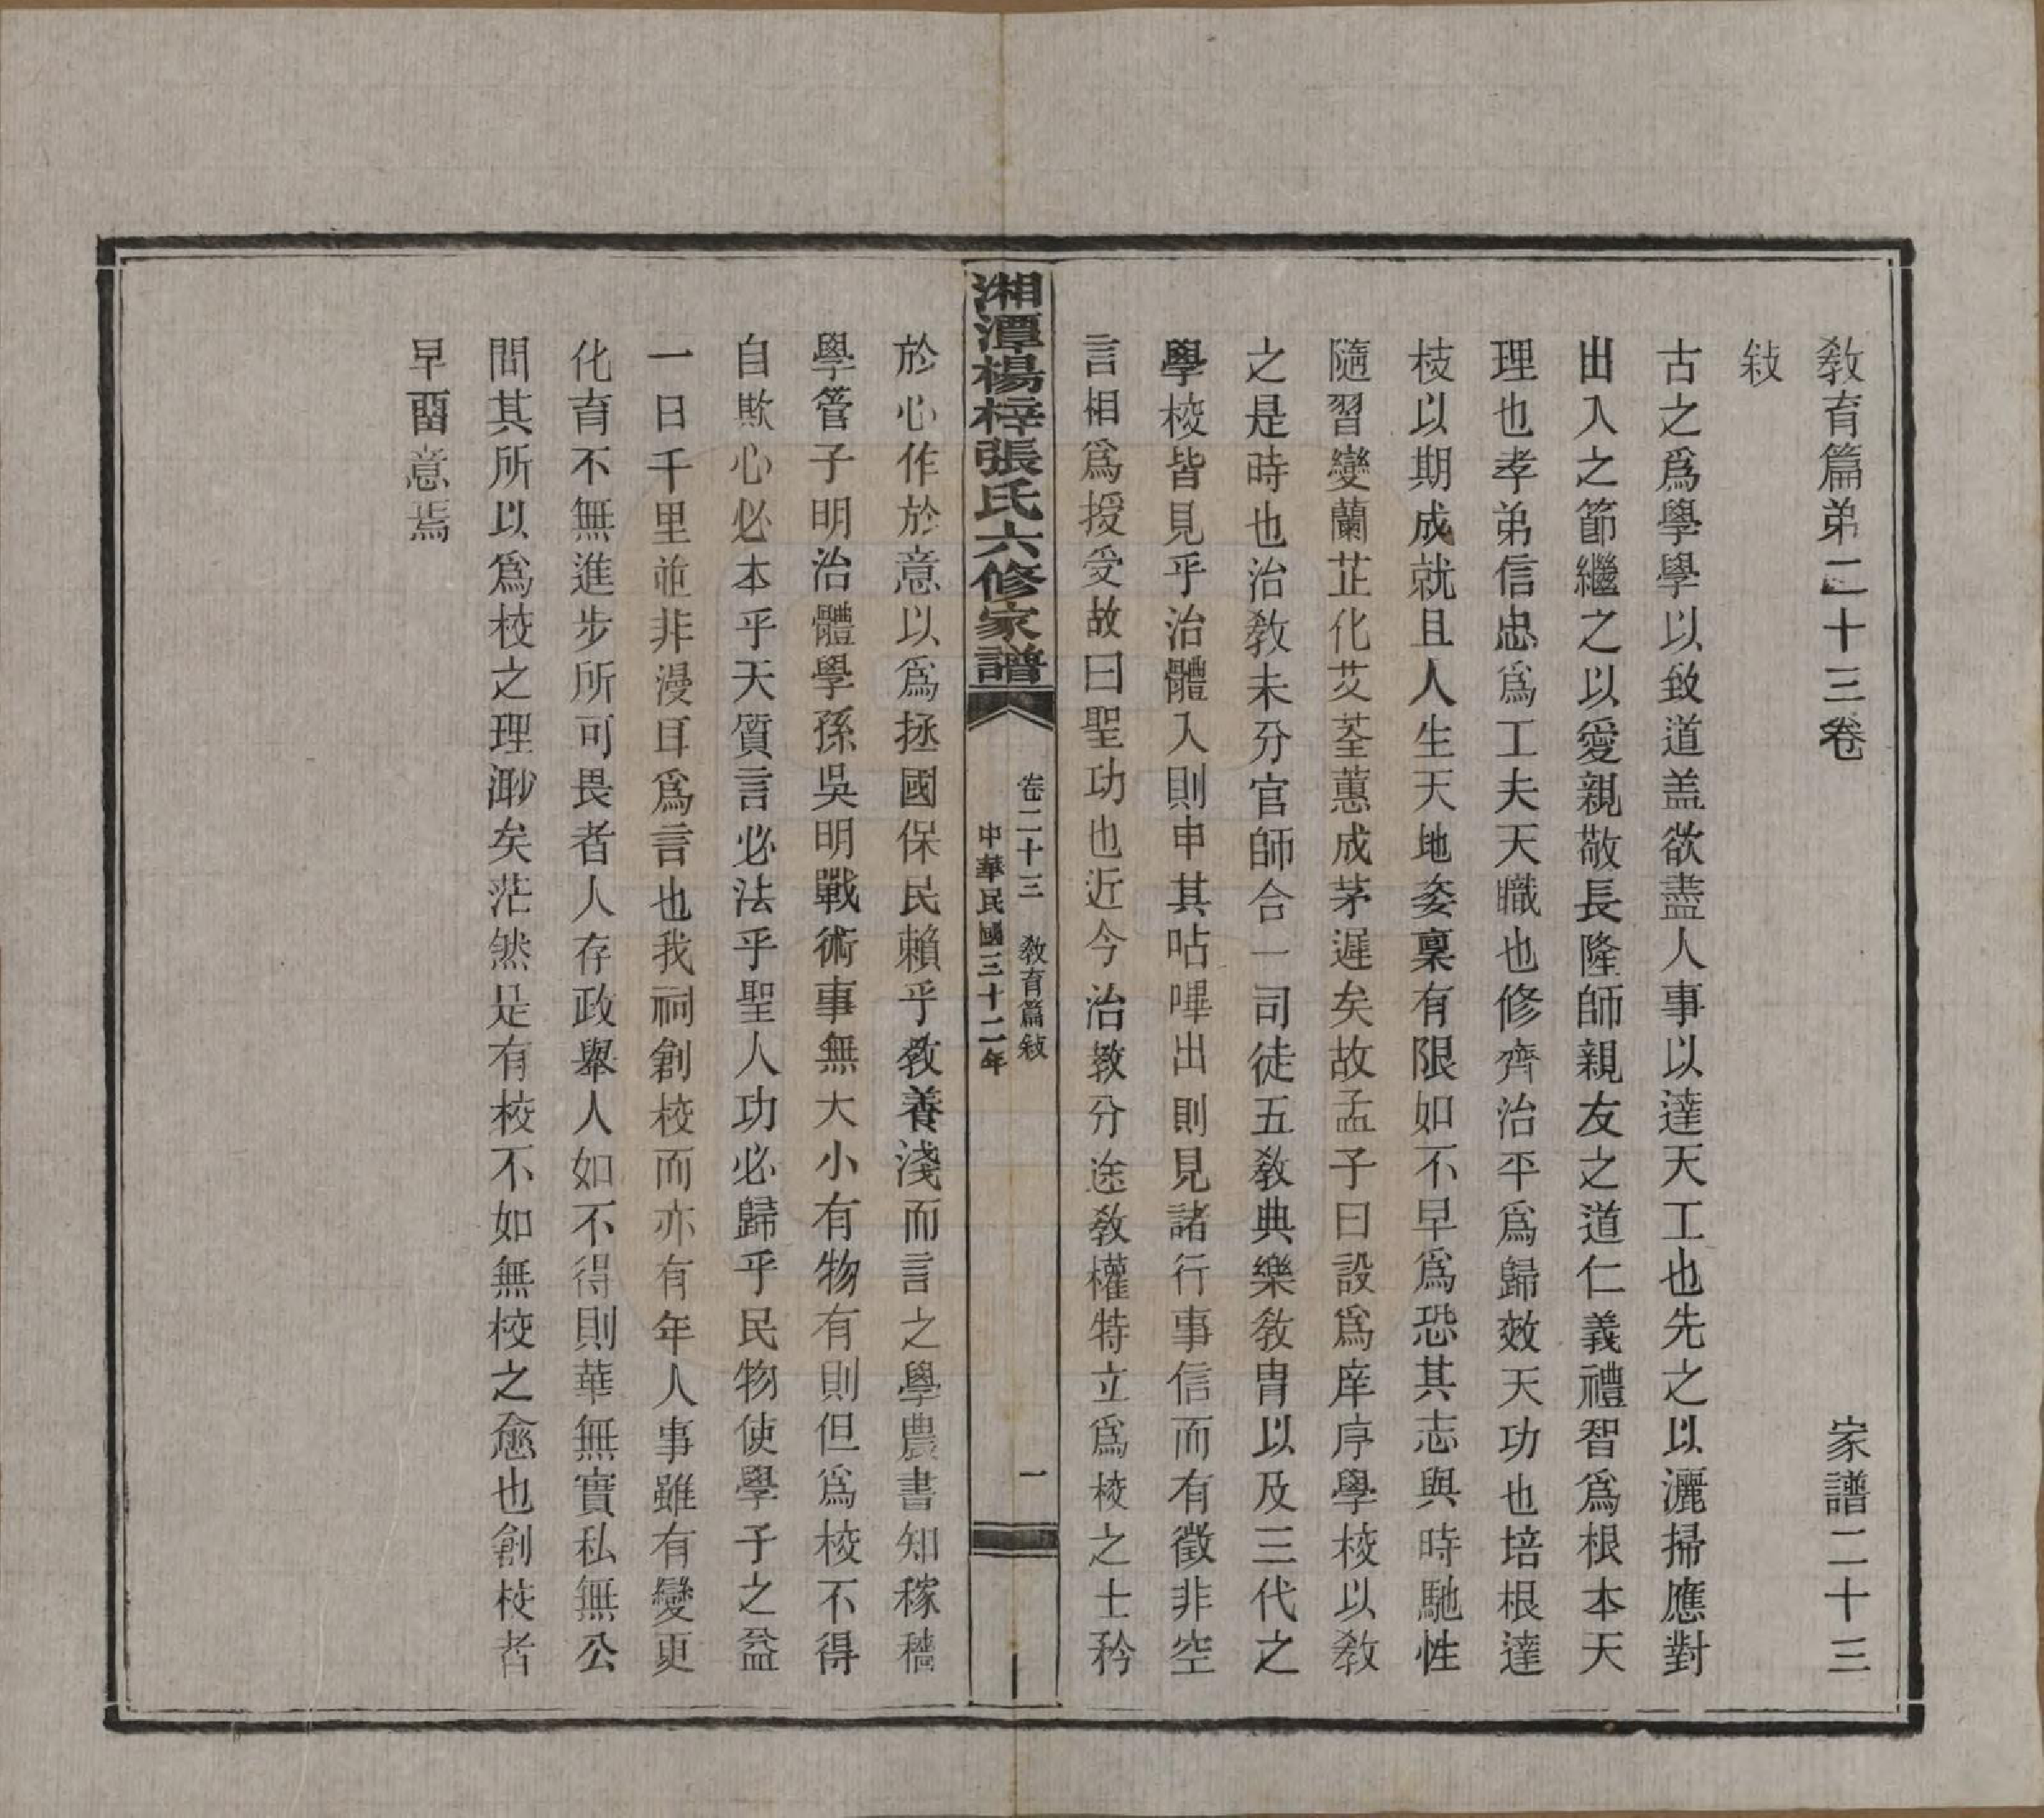 教育篇弟二十三卷　家譜二十三
敍
古之爲學學以致道盖欲盡人事以達天工也先之以灑掃應對
出入之節繼之以愛親敬長隆師親友之道仁義禮智爲根本天
理也孝弟信忠爲工夫天職也修齊治平爲歸效天功也培根達
枝以期成就且人生天地姿稟有限如不早爲恐其志與時馳性
隨習變蘭芷化艾荃蕙成茅遲矣故孟子曰設爲庠序學校以敎
之是時也治敎未分官師合一司徒五敎典樂敎胄以及三代之
學校皆見乎治體入則申其呫嗶出則見諸行事信而有徵非空
言相爲授受故曰聖功也近今治敎分途敎權特立爲校之士矜
湘潭楊梓張氏六修家譜
卷二十三　敎育篇敍
中華民國三十二年
一
於心作於意以爲拯國保民賴乎敎養淺而言之學農書知稼穡
學管子明治體學孫吳明戰術事無大小有物有則但爲校不得
自欺心必本乎天質言必法乎聖人功必歸乎民物使學子之益
一日千里並非漫耳爲言也我祠創校而亦有年人事雖有變更
化育不無進步所可畏者人存政舉人如不得則華無實私無公
問其所以爲校之理渺矣茫然是有校不如無校之愈也創校者
早畱意焉